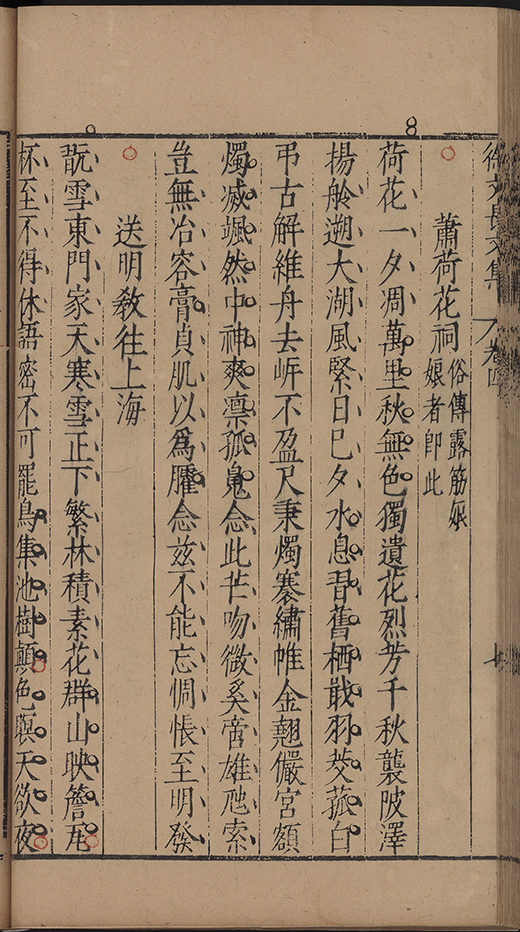 徐文長文集 卷四 七
蕭荷花祠 俗傳露筋娘
娘者即此
荷花一夕凋萬里秋無色獨遺花烈芳千秋襲陂澤
揚舲遡大湖風緊日已夕水息吾舊栖戢羽茭菰白
弔古解維舟去岍不盈尺秉燭褰繡帷金翹儼宮額
燭滅颯然中神爽凛孤念此芒吻微奚啻雄虺索
豈無冶容膏貞肌以為臛念兹不能忘惆悵至明發
送明教往上海
翫雪東門家天寒雪正下繁林積素花群山映簷瓦
杯至不得休語密不可罷鳥集池樹顛色暝天欲夜